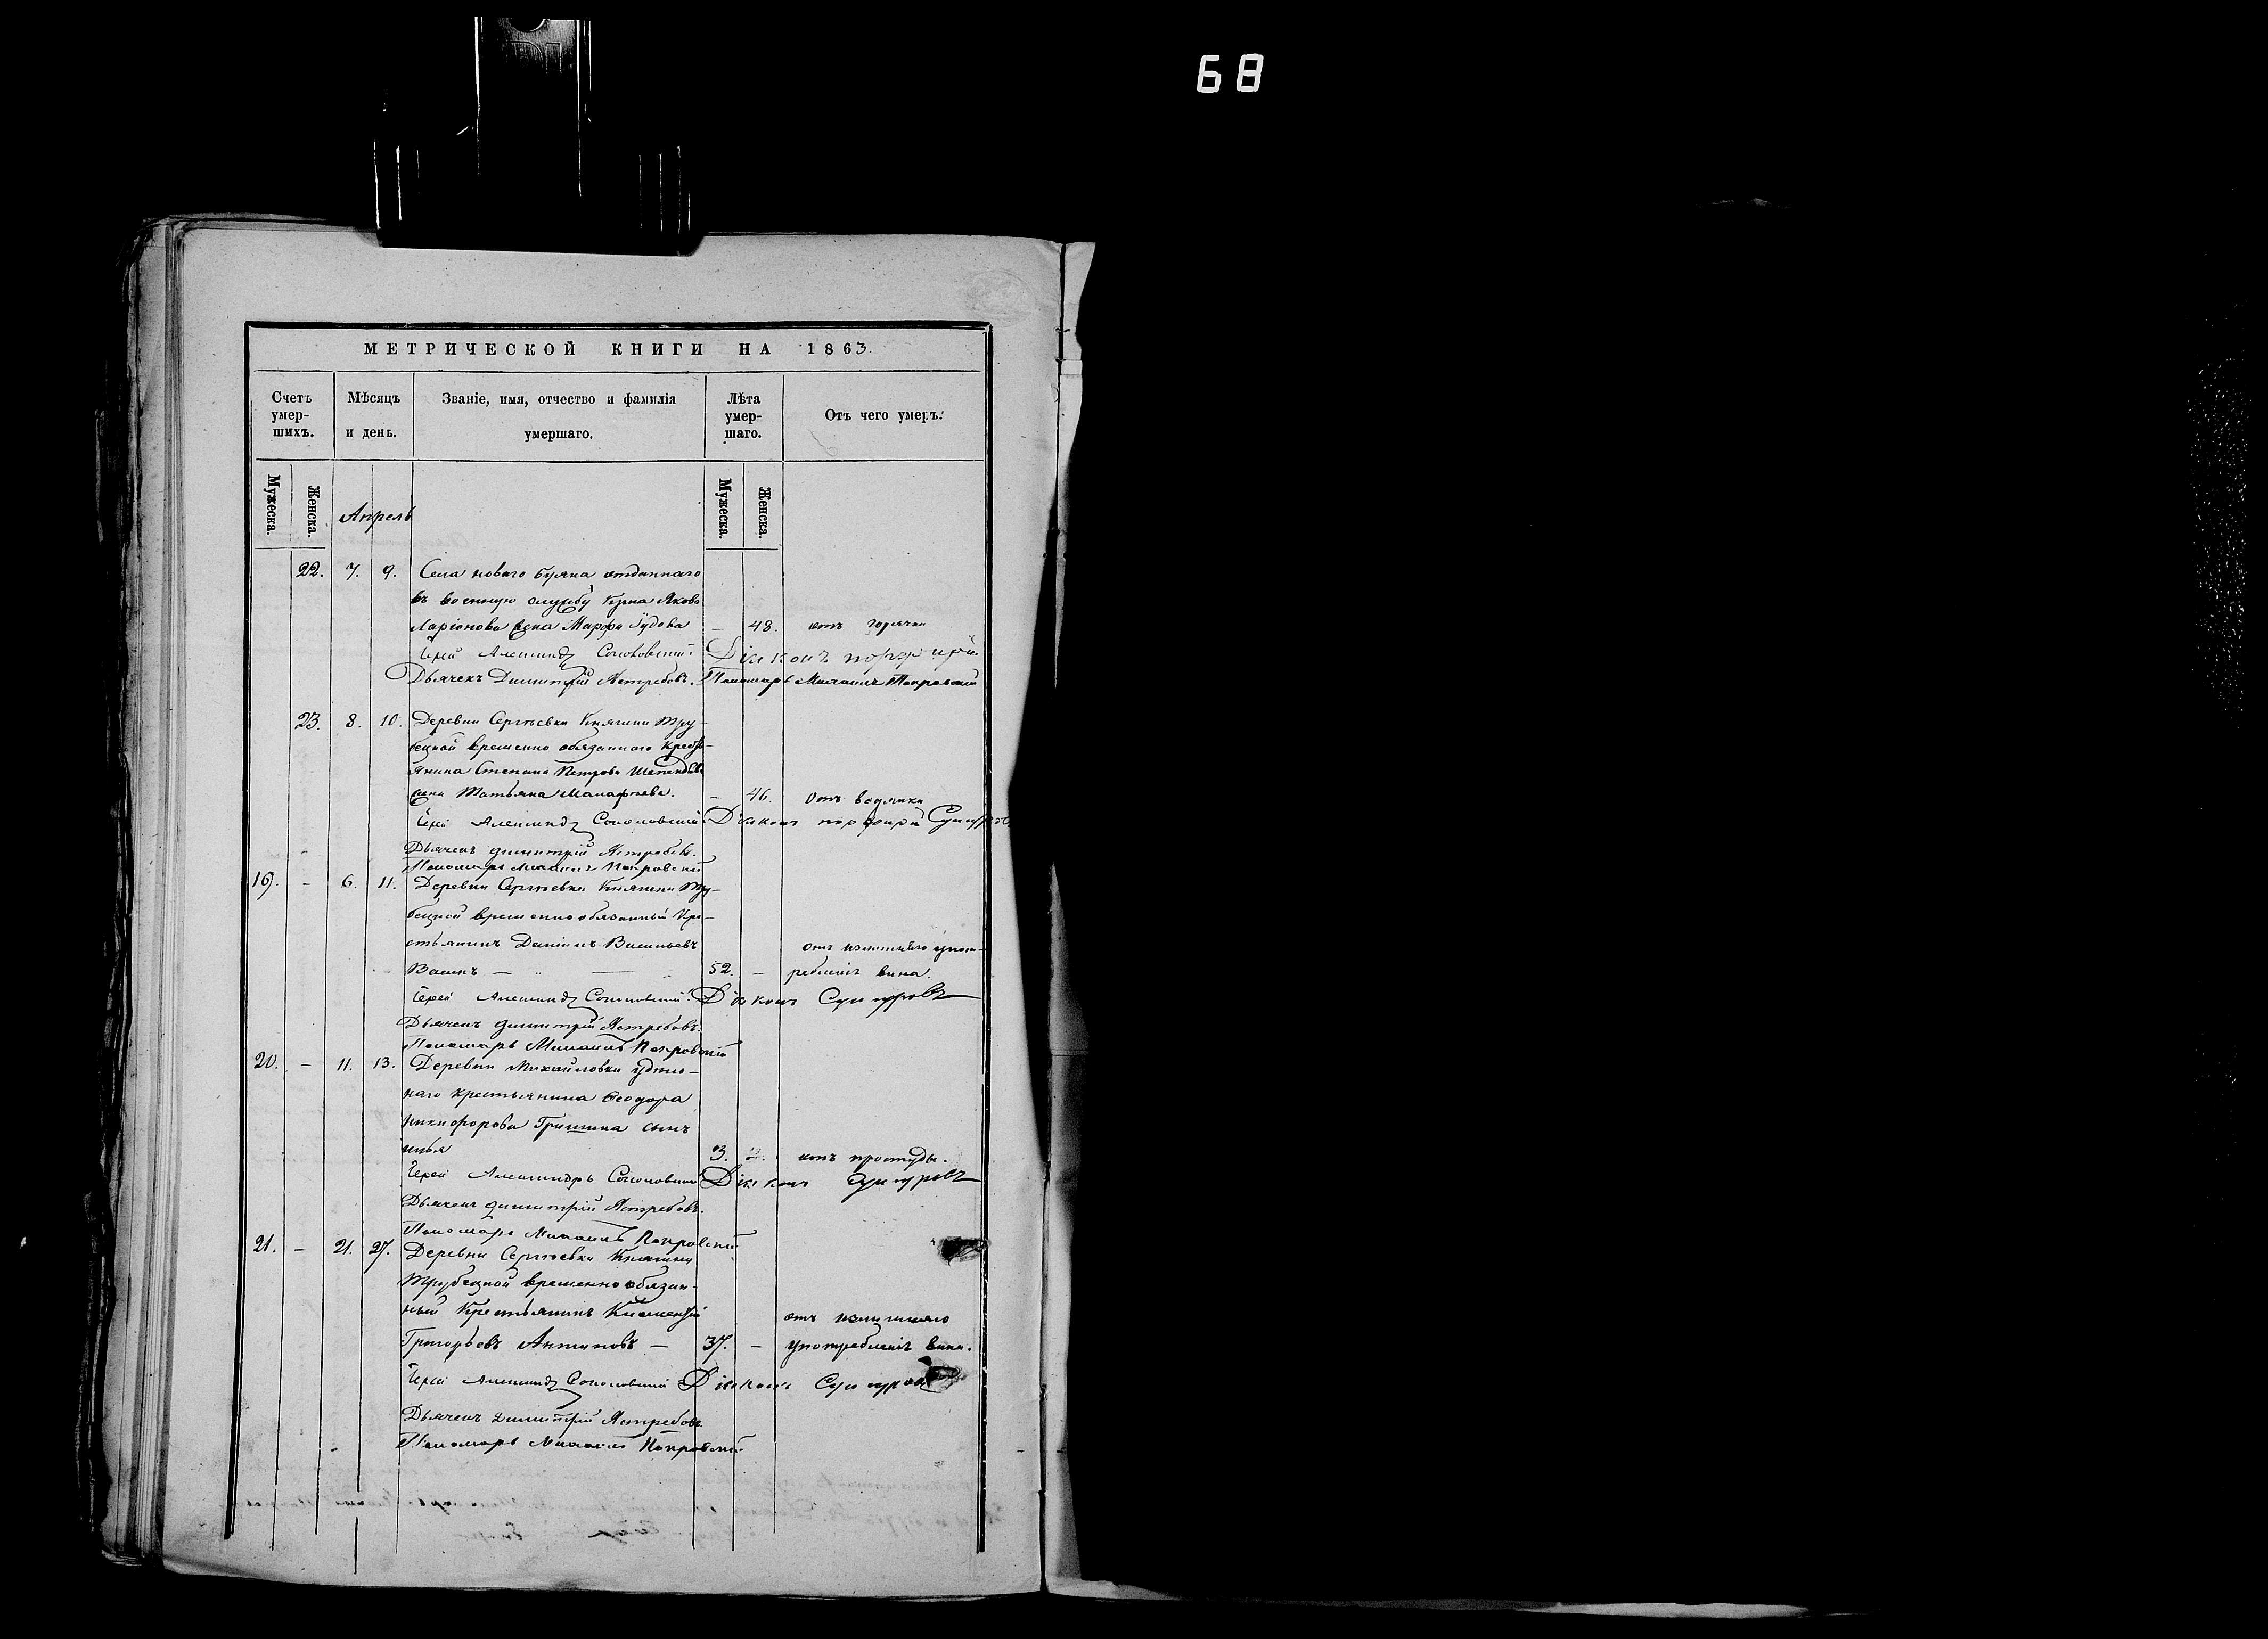 68
МЕТРИЧЕСКОЙ КНИГИ НА 1863.
Счетъ умер-шихъ.
Мѣсяцъ и день.
Званіе, имя, отчество и фамилія умершаго.
Лѣта умер-шаго.
Отъ чего умеръ.
Мужеска. Женска. Мужеска. Женска.
Апрель
22. 7. 9. Села новаго Буяна отданнаго
въ военную службу Якова
Ларіонова жена Марфа Іудова — 48. отъ горячки
Іерей Александръ Соколовскій. Діаконъ порфирій
Дьячекъ Димитрій Ястребовъ. Пономарь Михаилъ Покровскій
23. 8. 10. Деревни Сергѣевки Княгини Тру-
бецкой временно обязаннаго кресть-
янина Степана Петрова
жена Татьяна Малафѣева. — 46. Отъ водянки
Іерей Александръ Соколовскій Діаконъ порфирій Сунгуровъ
Дьячекъ димитрій Ястребовъ.
Пономарь Михаилъ Покровскій
19. — 6. 11. Деревни Сергѣевки Княгини Тру-
бецкой временно обязанный Кре-
стьянинъ Даніилъ Васильевъ отъ излишняго упот-
52. — ребленія вина.
Іерей Александръ Соколовскій. Діаконъ Сунгуровъ
Дьячекъ димитрій Ястребовъ.
Пономарь Михаилъ Покровскій
20. — 11. 13. Деревни Михайловки удѣль-
наго крестьянина Ѳеодора
Никифорова Гришина сынъ
Илья 3. отъ простуды.
Іерей Александръ Соколовскій Діаконъ Сунгуровъ
Дьячекъ димитрій Ястребовъ.
Пономарь Михаилъ Покровскій
21. — 21. 27. Деревни Сергѣевки Княгини
Трубецкой временно обязан-
ный Крестьянинъ Климентій отъ излишняго
Григорьевъ Антиповъ — 37. — употребленія вина.
Іерей Александръ Соколовскій Діаконъ Сунгуровъ
Дьячекъ димитрій Ястребовъ
Пономарь Михаилъ Покровскій